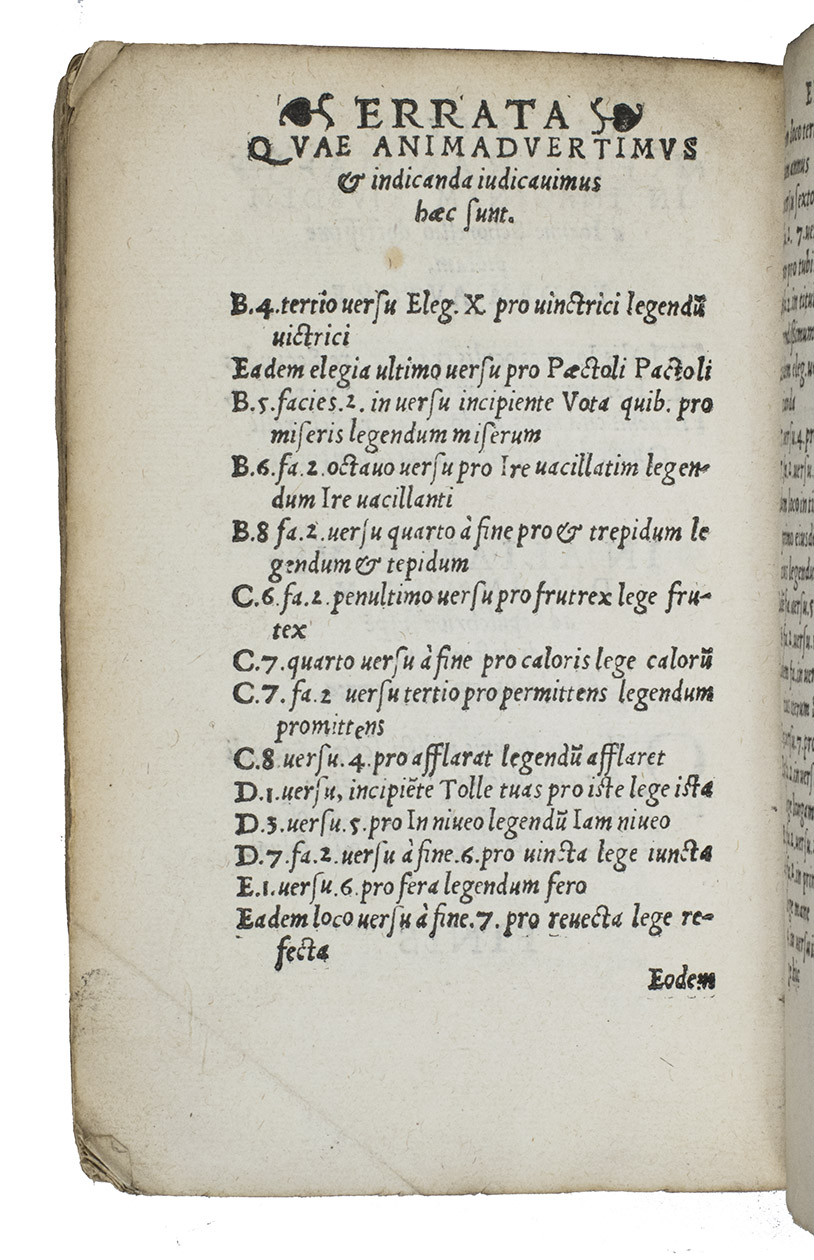 ERRATA
QVAE ANIMADVERTIMVS
& indicanda iudicauimus
hæc ſunt.
B.4.tertio uerſu Eleg. X pro uinctrici legendū
uictrici
Eadem elegia ultimo uerſu pro Pæctoli Pactoli
B.5.facies.2. in uerſu incipiente Vota quib. pro
miſeris legendum miſerum
B.6.fa.2.octauo uerſu pro Ire uacillatim legen-
dum Ire uacillanti
B.8 fa.2.uerſu quarto à fine pro & trepidum le
gendum & tepidum
C.6.fa.2.penultimo uerſu pro frutrex lege fru-
tex
C.7.quarto uerſu à fine pro caloris lege calorū
C.7.fa.2 uerſu tertio pro permittens legendum
promittens
C.8 uerſu.4.pro afflarat legendū afflaret
D.1.uerſu, incipiēte Tolle tuas pro iſte lege iſta
D.3.uerſu.5.pro In niueo legendū Iam niueo
D.7.fa.2.uerſu à fine.6.pro uincta lege iuncta
E.1.uerſu.6.pro fera legendum fero
Eadem loco uerſu à fine.7.pro reuecta lege re-
fecta
Eodem